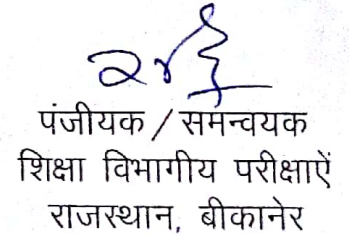 पंजीयक / समन्वयक
शिक्षा विभागीय परीक्षाऐं
राजस्थान, बीकानेर